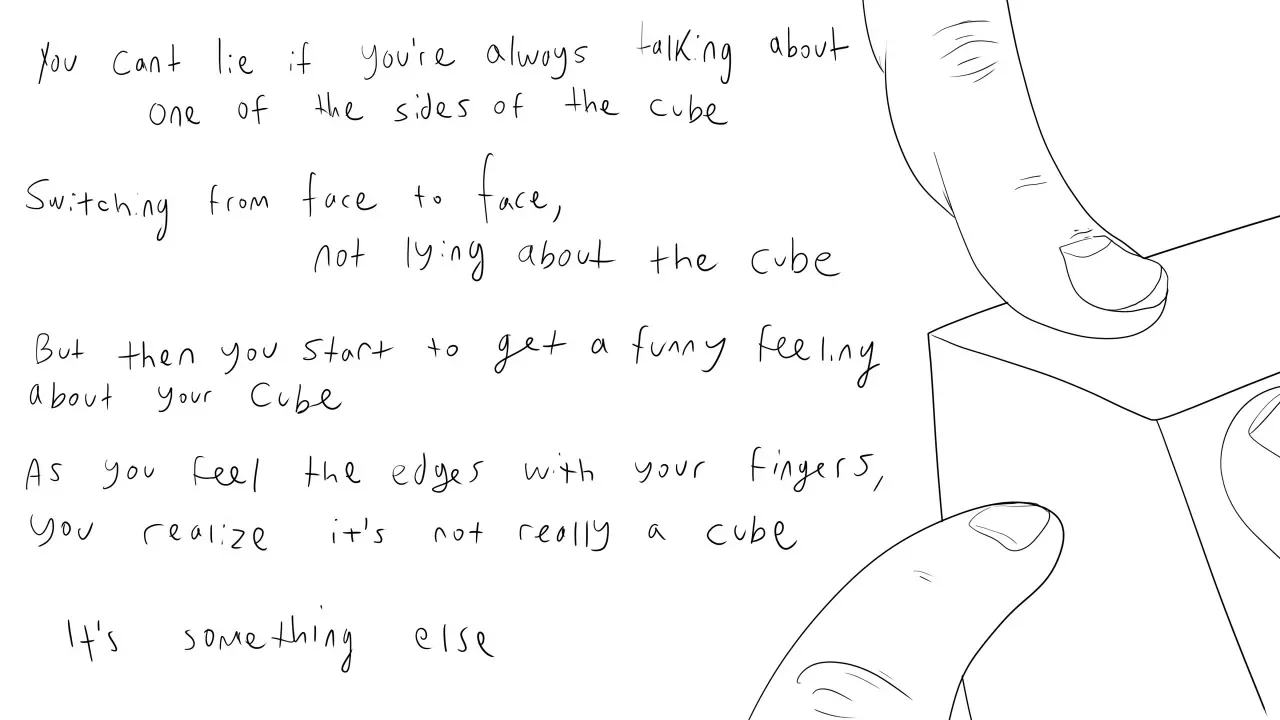 You cant lie if you're always talking about
one of the sides of the cube
Switching from face to face,
not lying about the cube
But then you start to get a funny feeling
about your cube
As you feel the edges with your fingers,
you realize it's not really a cube
It's something else